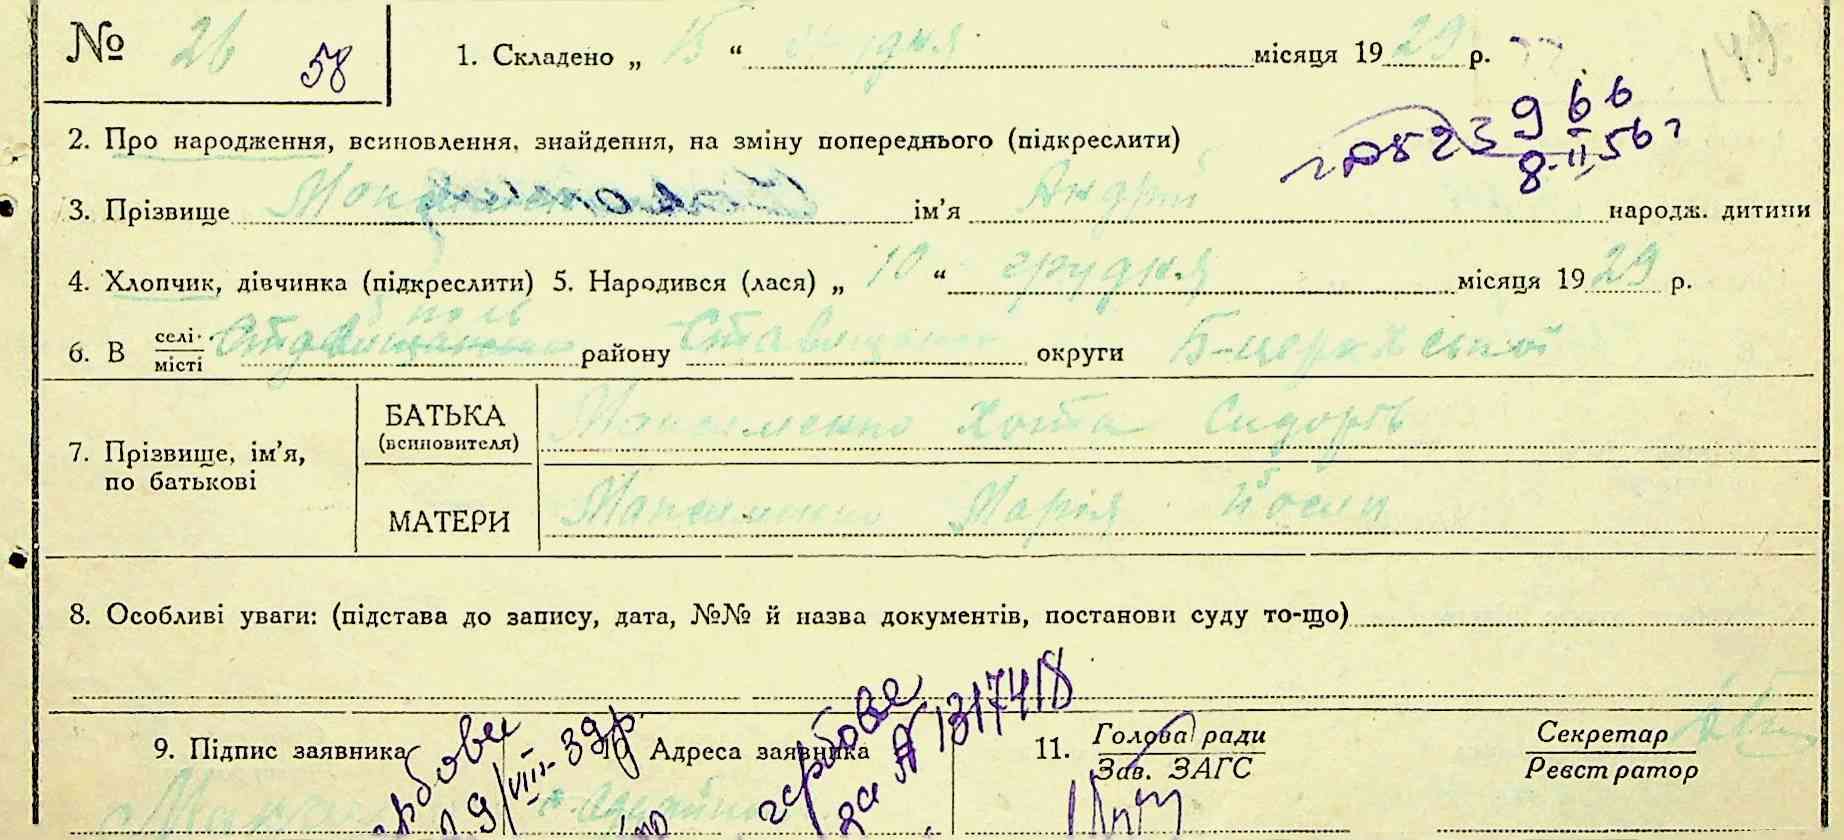 № 26 58
1. Складено „ 15 “ грудня місяця 19 29 р.
149
2. Про народження, всиновлення, знайдення, на зміну попереднього (підкреслити)
8-II 56 г
3. Прізвище ім’я Андрій народж. дитини
4. Хлопчик, дівчинка (підкреслити) 5. Народився (лася) „ 10 “ грудня місяця 19 29 р.
6. В селі місті району Ставищансь округи Б-церківської
7. Прізвище, ім’я, по батькові
БАТЬКА (всиновителя) Максименко Хома Сидорів
МАТЕРИ Максименко Марія Йосип
8. Особливі уваги: (підстава до запису, дата, №№ й назва документів, постанови суду то-що)
9. Підпис заявника 10. Адреса заявника 11. Голова ради Зав. ЗАГС Секретар Реєстратор
гербове 19/VIII-39р.
гербове за № 1317418